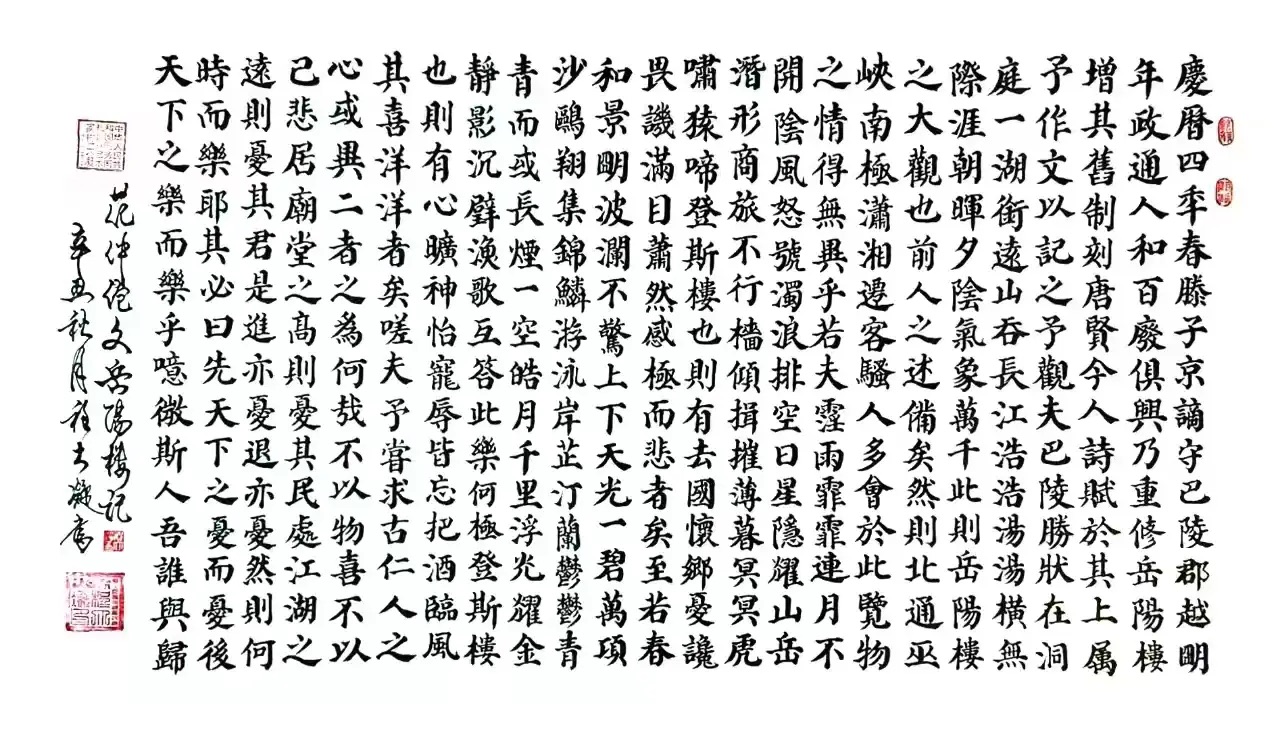 慶曆四年春滕子京謫守巴陵郡越明
年政通人和百廢俱興乃重修岳陽樓
增其舊制刻唐賢今人詩賦於其上属
予作文以記之予觀夫巴陵勝狀在洞
庭一湖銜遠山吞長江浩浩湯湯橫無
際涯朝暉夕陰氣象萬千此則岳陽樓
之大觀也前人之述備矣然則北通巫
峽南極瀟湘遷客騷人多會於此覽物
之情得無異乎若夫霪雨霏霏連月不
開陰風怒號濁浪排空日星隱耀山岳
潛形商旅不行檣傾楫摧薄暮冥冥虎
嘯猿啼登斯樓也則有去國懷鄉憂讒
畏譏滿目蕭然感極而悲者矣至若春
和景明波瀾不驚上下天光一碧萬頃
沙鷗翔集錦鱗游泳岸芷汀蘭鬱鬱青
青而或長煙一空皓月千里浮光耀金
靜影沉璧漁歌互答此樂何極登斯樓
也則有心曠神怡寵辱皆忘把酒臨風
其喜洋洋者矣嗟夫予嘗求古仁人之
心或異二者之為何哉不以物喜不以
己悲居廟堂之高則憂其民處江湖之
遠則憂其君是進亦憂退亦憂然則何
時而樂耶其必曰先天下之憂而憂後
天下之樂而樂乎噫微斯人吾誰與歸
范仲淹文岳陽樓記
辛丑秋月